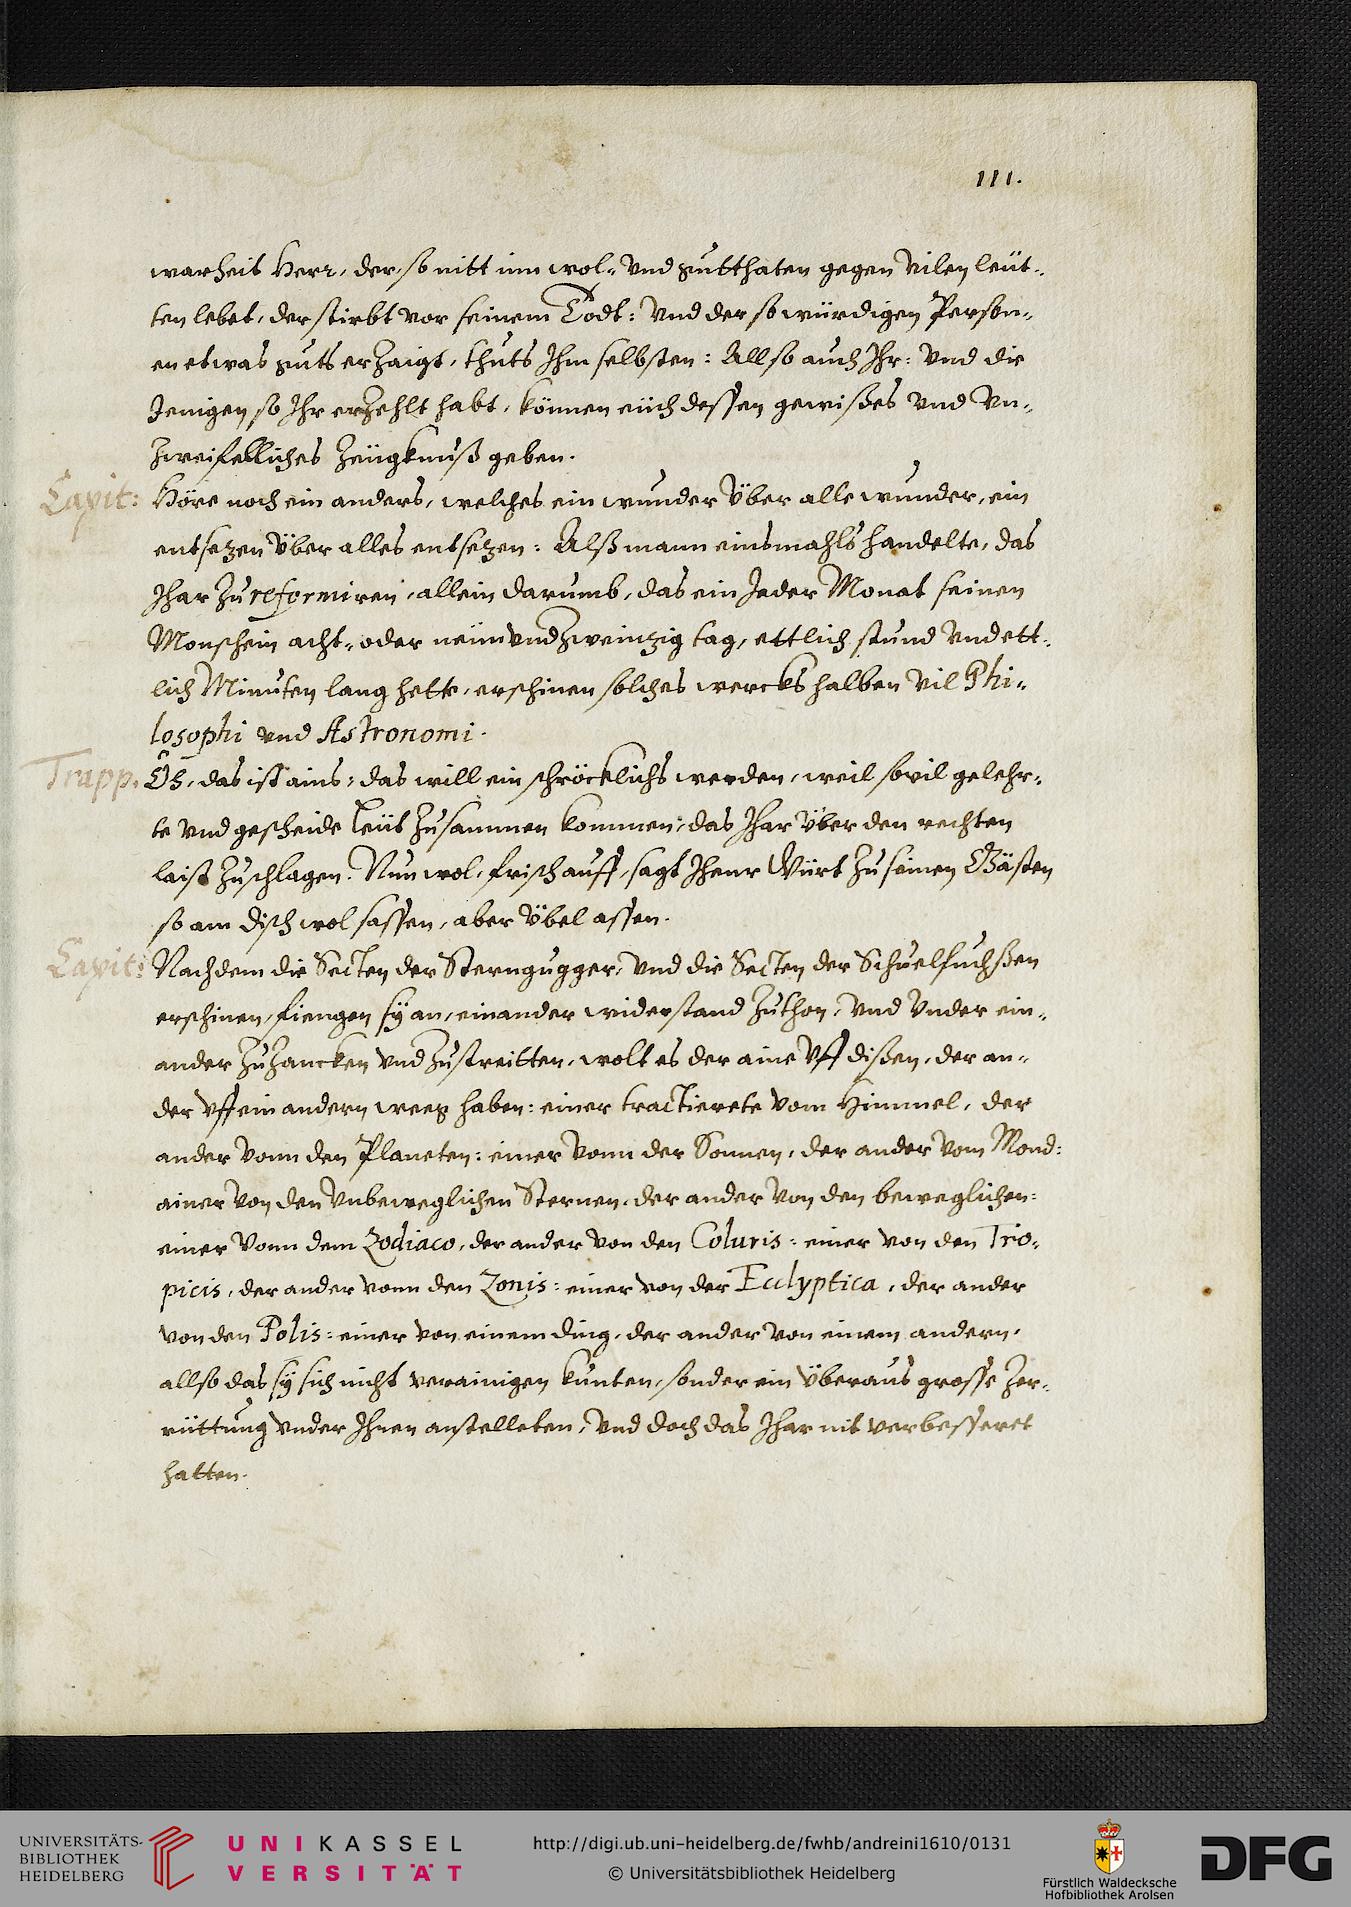 111.
warheit Herr, der, so nitt inn wol- vnd gutthaten gegen vilen leüt-
ten lebet, der stirbt vor seinem Todt: vnd der so würdigen Person-
en etwas guts erzaigt, thuts Ihm selbsten: Allso auch Ihr: vnd die
Jenigen so Ihr erzehlt habt, können eüch dessen gewißes vnd vn-
zweifelliches Zeügknuß geben.
Capit: Höre noch ein anders, welches ein wunder über alle wunder, ein
entsezen über alles entsezen: Alß mann einsmahls handelte, das
Jhar zu reformiren, allein darumb, das ein Jeder Monat seinen
Monschein acht- oder neünvndzweinzig tag, ettlich stund vnd ett-
lich Minuten lang hette, erschinen solches wercks halben vil Phi-
losophi vnd Astronomi.
Trapp. Oh, das ist ains: das will ein schröcklichs werden, weil sovil gelehr-
te vnd gescheide leüt zusammen kommen, das Jhar über den rechten
laist zuschlagen. Nun wol, frisch auff, sagt Jhenr Würt zu seinen Gästen
so am disch wol sassen, aber übel assen.
Capit: Nachdem die Secten der Sterngugger, vnd die Secten der Schuelfuchßen
erschinen, fiengen sÿ an, einander widerstand zuthon, vnd vnder ein-
ander zuzancken vnd zustreitten, wolt es der aine vff dißen, der an-
der vff ein andern weeg haben: einer tractierete vom Himmel, der
ander vonn den Planeten: einer vonn der Sonnen, der ander vom Mond:
ainer von den vnbeweglichen Sternen, der ander von den beweglichen:
einer vonn dem Zodiaco, der ander von den Coluris: einer von den Tro-
picis, der ander vonn den Zonis: einer von der Ecclyptica, der ander
von den Polis: einer von einem ding, der ander von einem andern,
allso das sÿ sich nicht verainigen kunten, sonder ein überaus grosse Zer-
rüttung vnder Ihnen anstelleten, vnd doch das Jhar nit verbesseret
hatten.
UNIVERSITÄTS-
BIBLIOTHEK
HEIDELBERG
UNIKASSEL
VERSITÄT
http://digi.ub.uni-heidelberg.de/fwhb/andreini1610/0131
© Universitätsbibliothek Heidelberg
Fürstlich Waldecksche
Hofbibliothek Arolsen
DFG